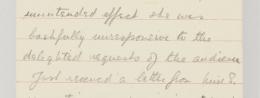 unintended effect she was
bashfully unresponsive to the
delighted requests of the audience
Just received a letter from